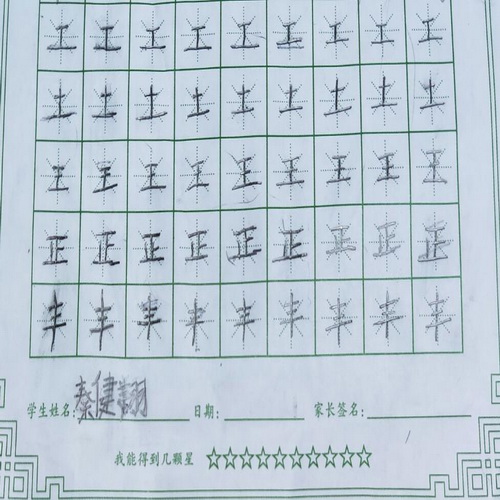 工工工工工工工工工
土土土土土土土土土
王王王王王王王王王
正正正正正正正正正
丰丰丰丰丰丰丰丰丰
学生姓名:秦健翊 日期: 家长签名:
我能得到几颗星 ☆☆☆☆☆☆☆☆☆☆